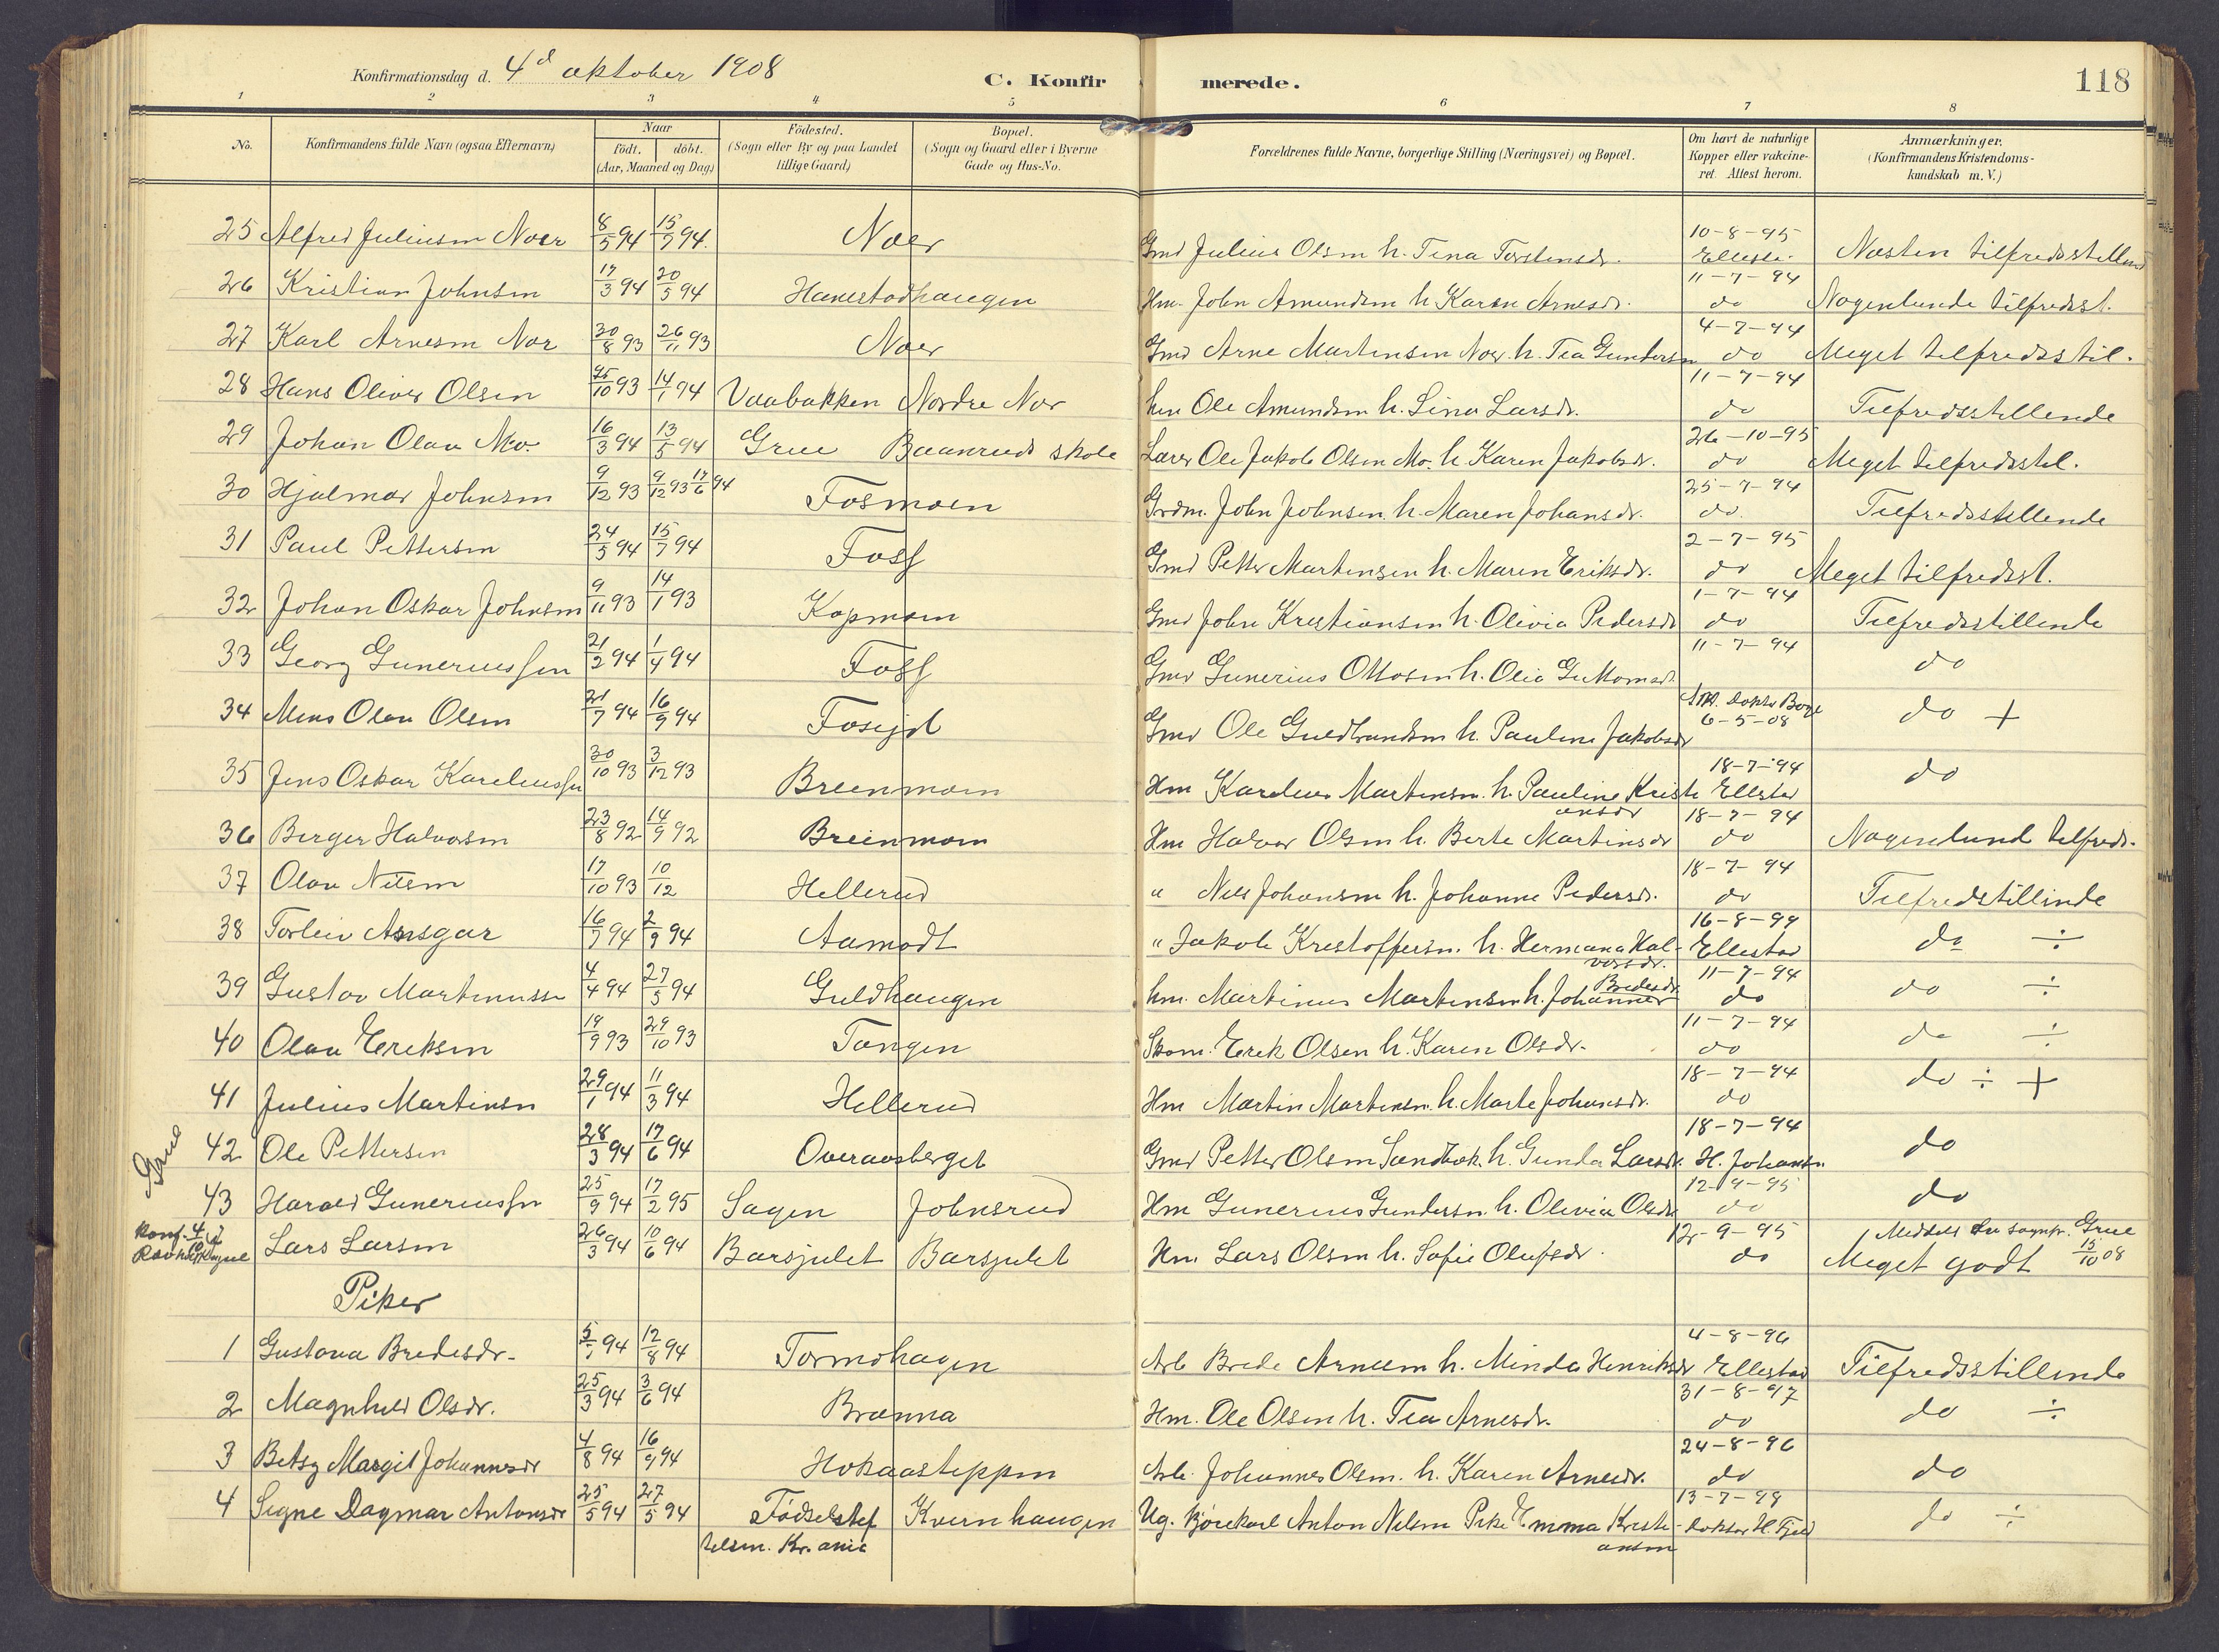 Konfirmationsdag d. 4d oktober 1908 C. Konfirmerede. 118
1 2 3 4 5 6 7 8
No. Konfirmandens fulde Navn (ogsaa Efternavn) Naar født. døbt. (Aar, Maaned og Dag) Fødested. (Sogn eller By og paa Landet tillige Gaard) Bopæl. (Sogn og Gaard eller i Byerne Gade og Hus-No. Forældrenes fulde Navne, borgerlige Stilling (Næringsvei) og Bopæl. Om havt de naturlige Kopper eller vakcineret. Attest herom. Anmærkninger. (Konfirmandens Kristendomskundskab m. V.)
25 Alfred Juliusen Noer 8/5 94 15/7 94. Noer Gmd Julius Olsen h. Tina Torstensdr. 10-8-95 Næsten tilfredsstillend
26 Kristian Johnsen 17/3 94 20/5 94 Hanestadhaugen Hm. John Amundsen h Karen Arnesdr. 11-7-94 do Nogenlunde tilfredsst.
27 Karl Arnesen Nor 30/8 93 26/11 93 Noer Gmd Arne Martensen Noer h. Tea Gundersn 4-7-94 do Meget tilfredsstil.
28 Hans Oliver Olsen 25/10 93 14/1 94 Vaabakken Nordre Nor hm Ole Amundsen h. Lina Larsdr. 11-7-94 do Tilfredsstillende
29 Johan Olav Mo. 16/3 94 13/5 94 Grue Baanruds skole Lærer Ole Jakob Olsen Mo. h. Karen Jakobsdr. 26-10-95 do Meget tilfredsstil.
30 Hjalmar Johnsen 9/12 93 9/12 93 17/6 94 Fosmoen Grdm. John Johnsen. h. Maren Johansdr. 25-7-94 do. Tilfredsstillende
31 Paul Pettersen 24/5 94 15/7 94 Foss Gmd Petter Martensen h. Maren Eriksdr. 2-7-95 do Meget tilfredsst.
32 Johan Oskar Johnsen 9/11 93 14/1 93 Kopmoen Gmd John Kristiansen h. Olivia Pedersdr 1-7-94 do Tilfredsstillende
33 Georg Guneriussen 21/2 94 1/4 94 Foss Gmd Gunerius Ottosen h. Olia 11-7-94 do
34 Mons Olav Olsen 21/7 94 16/9 94 Gmd Ole Guldbrandsen h. Pauline Jakobsdr 6-5-08 do +
35 Jens Oskar Kareliussen 30/10 93 3/12 93 Breenmoen Hm Karelius Martinsen. h. Pauline Kristiansdr 18-7-94 Ellestad do
36 Berger Halvorsen 23/8 92 14/9 92 Breenmoen Hm Halvor Olsen h. Berte Martinsdr 18-7-94 do Nogenlund tilfreds.
37 Olav Nilsen 17/10 93 10/12 Hellerud " Nils Johansen h. Johanne Pedersdr. 18-7-94 do Tilfredstillende
38 Torleiv Ansgar 16/7 94 2/9 94 Aamodt " Jakob Kristoffersn. h. Hermana Halvorsdr. 16-8-99 Ellestad do ÷
39 Gustav Martinussen 4/4 94 27/5 94 Guldhaugen hm. Martinus Martinsen h. Johanne Bredesdr. 11-7-94 do do ÷
40 Olav Eriksen 19/9 93 29/10 93 Tangen Skom. Erik Olsen h. Karen Olsdr. 11-7-94 do do ÷
41 Julius Martinsen 29/1 94 11/3 94 Hellerud Hm Martin Martinsn. h. Marte Johansdr. 18-7-94 do do ÷ +
Grue 42 Ole Pettersen 28/3 94 17/6 94 Overaasberget Gmd Petter Olsen Sandbak. h. Gunda Larsdr. 18-7-94 H. Johansen do
43 Harald Guneriussen 25/9 94 17/2 95 Sagen Johnsrud Hm Gunerius Gundersn. h. Olivia Olsdr 12-9-95 do do
Konf. 4/10 Lars Larsen 26/3 94 10/6 94 Barsjulet Barsjulet Hm. Lars Olsen h. Sofie Olufsdr. 12-9-95 do Meddelt fra sognepr. Grue 15/10 08 Meget godt
Piker
1 Gustava Bredesdr. 5/1 94 12/8 94 Tormohagen Arb Brede Arnesen h. Minda Henriksdr 4-8-96 Ellestad Tilfredsstillende
2 Magnhild Olsdr. 25/3 94 3/6 94 Brænna Hm. Ole Olsen h. Tea Arnesdr. 31-8-97 do do ÷
3 Betsy Margit Johannesdr 4/8 94 16/9 94 Hokaasteppen Arb. Johannes Olsen. h. Karen Arnesdr. 24-8-96 do do
4 Signe Dagmar Antonsdr 25/5 94 27/5 94 Fødselstif telsen. Kr.ania Kvernhaugen Ug. Kjørekarl Anton Nilsen Pike Emma Kristiansen 13-7-99 doktor H. Fjeld do ÷